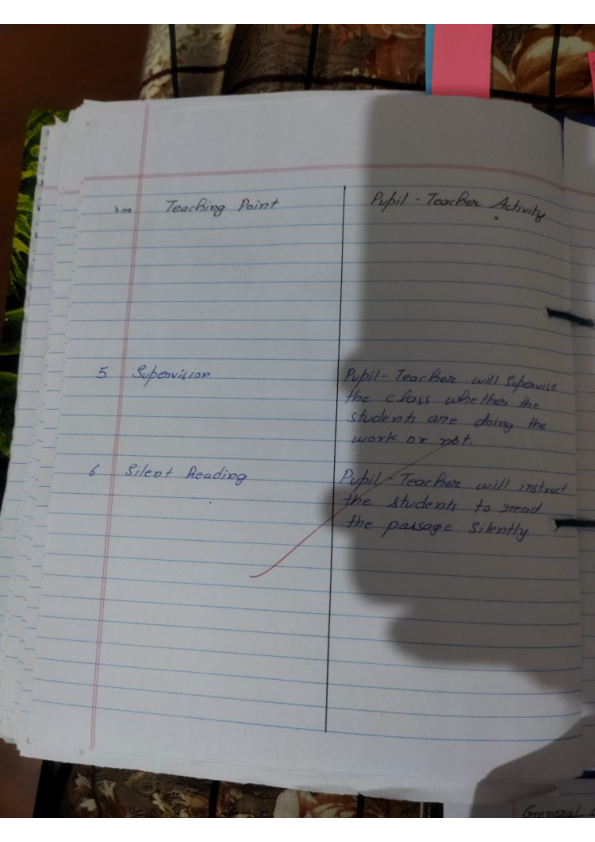 S.no Teaching Point Pupil - Teacher Activity
5 Supervision Pupil - Teacher will Supervise
the class whether the
students are doing the
work or not.
6 Silent Reading Pupil - Teacher will instruct
the students to read
the passage silently.
General